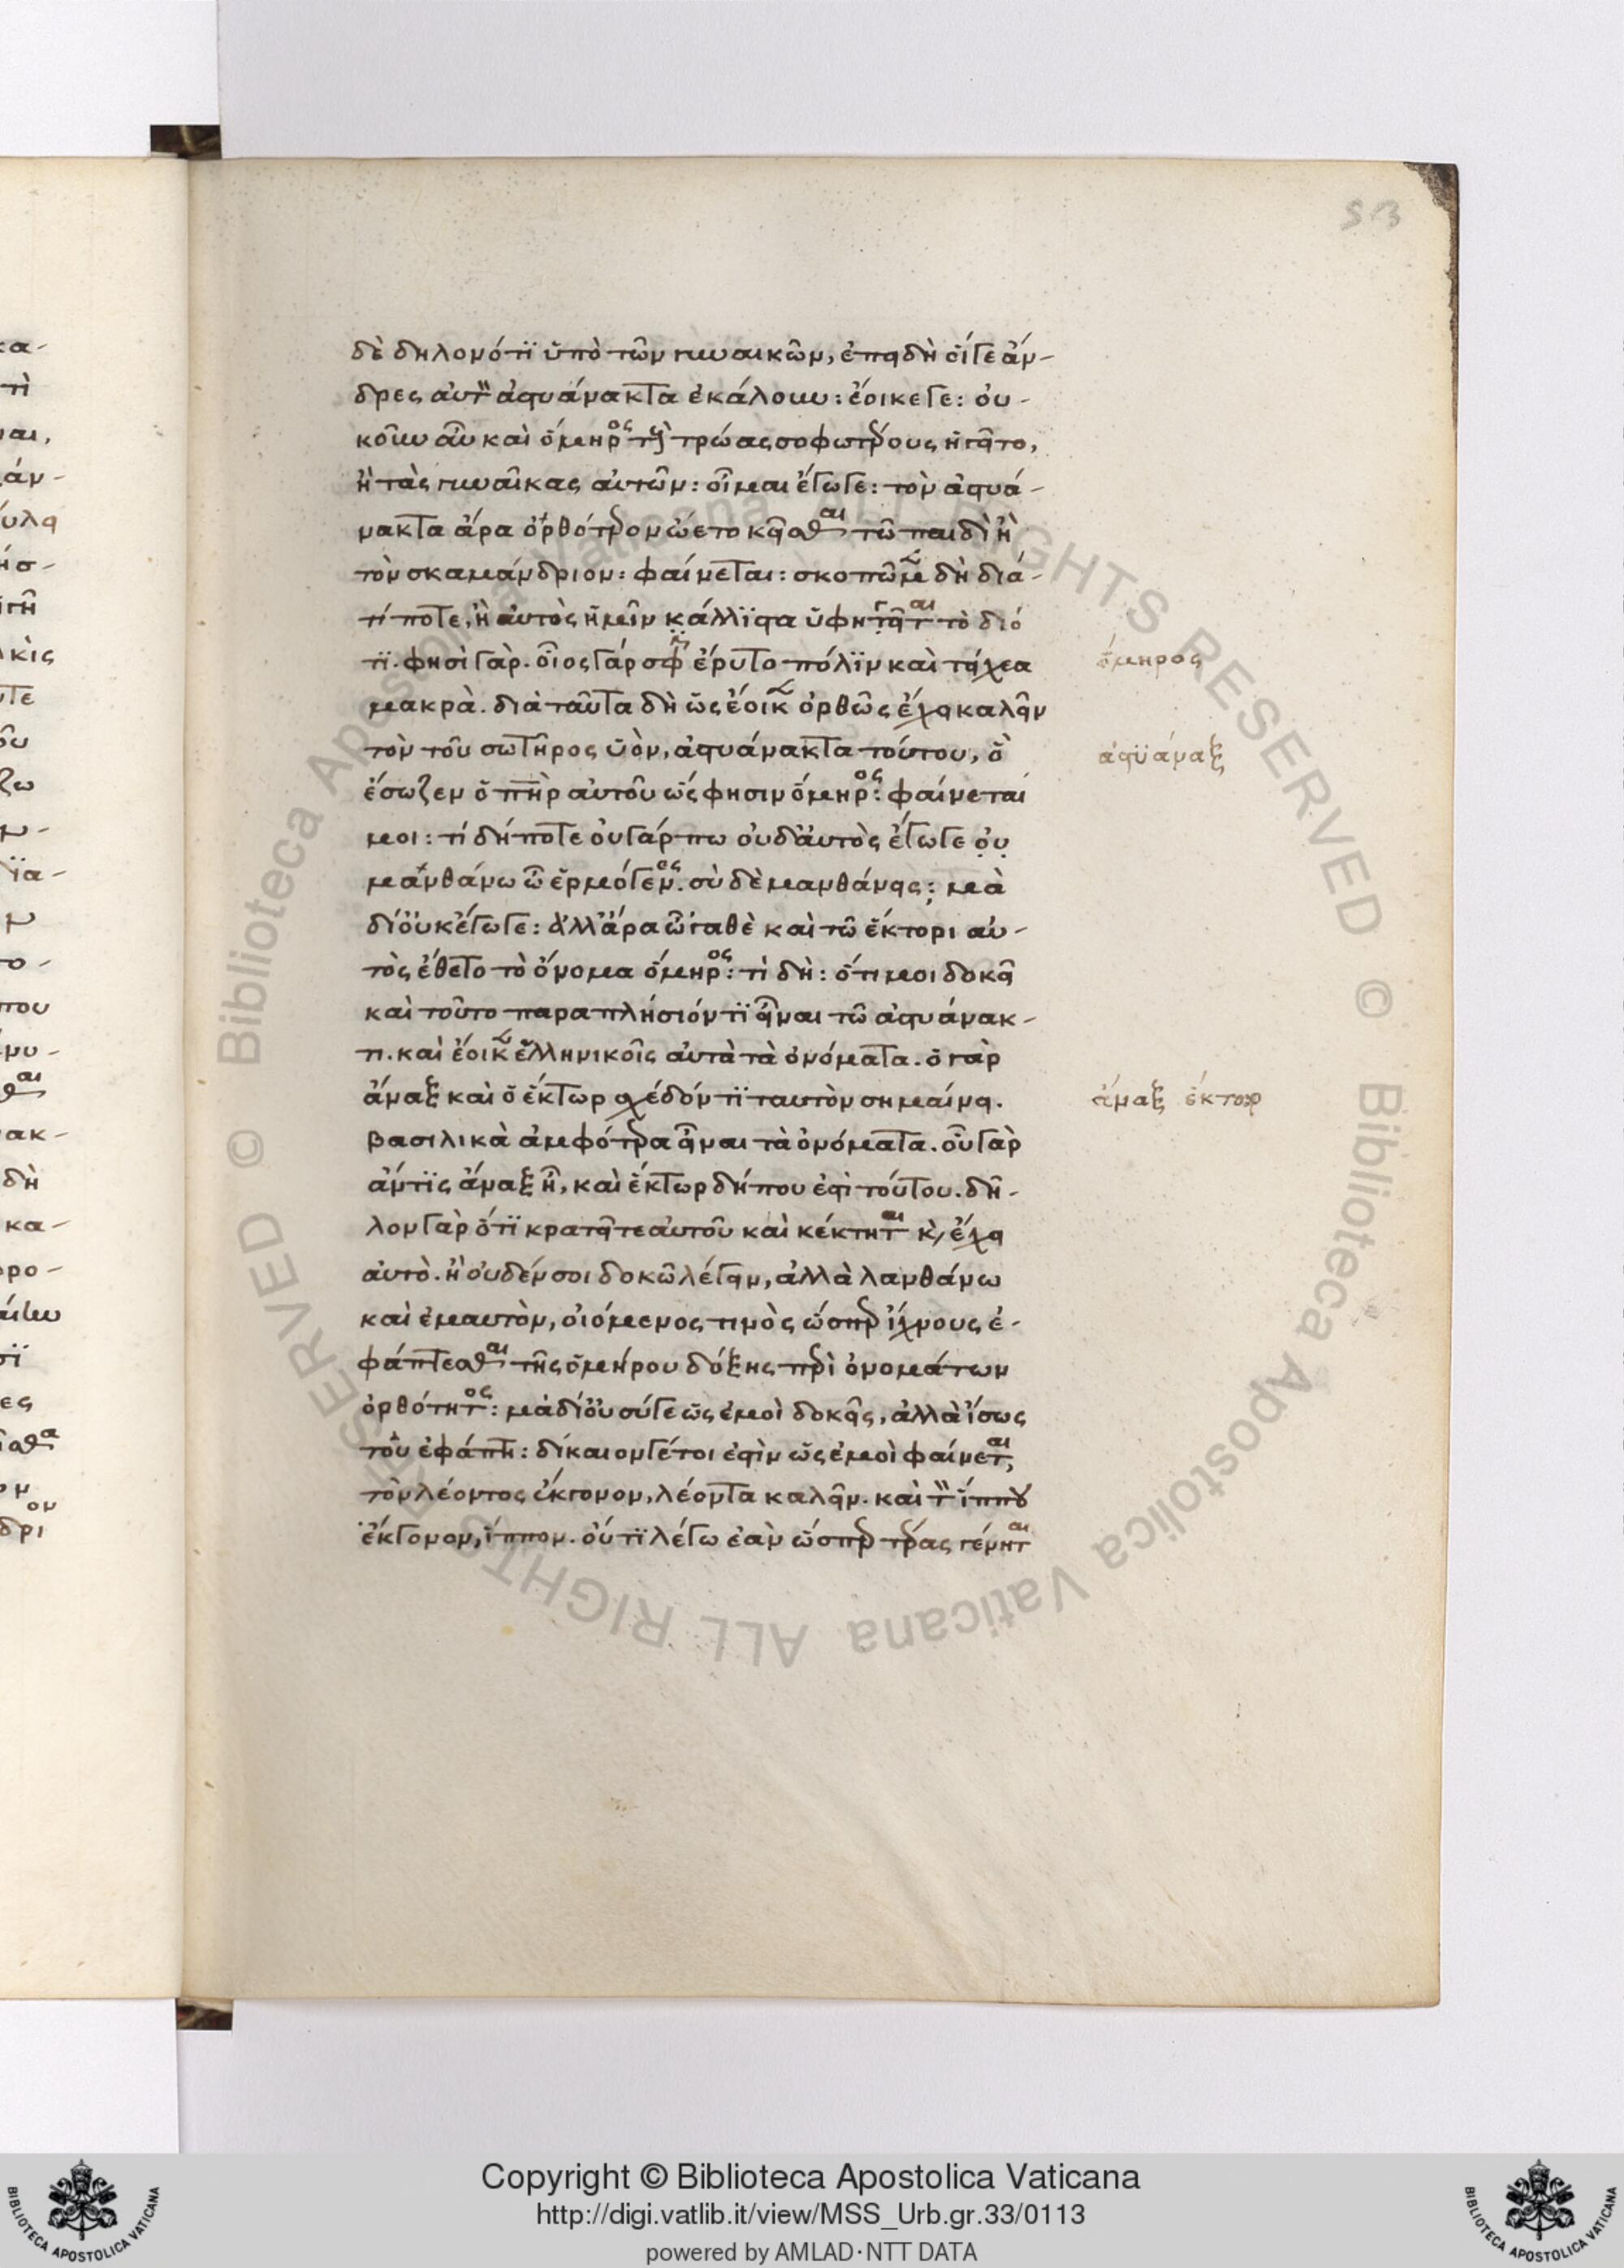 53
δὲ δηλονότϊ ὑπὸ τῶν γυναικῶν, ἐπειδὴ οἵ γε ἄν-
δρες αὐτὸν ἀστυάνακτα ἐκάλουν: ἔοικέ γε: οὐ-
κοῦν ἂν καὶ ὅμηρος τοὺς τρῶας σοφωτέρους ἡγεῖτο,
ἢ τὰς γυναῖκας αὐτῶν: οἶμαι ἔγωγε: τὸν ἀστυά-
νακτα ἄρα ὀρθότερον ὤετο κεῖσθαι τῷ παιδὶ ἢ
τὸν σκαμάνδριον: φαίνεται: σκοπῶμεν δὴ διά-
τί ποτε, ἢ αὐτὸς ἡμῖν κάλλϊστα ὑφηγεῖται τὸ διό
τϊ. φησὶ γὰρ. οἶος γάρ σφιν ἔρυτο πόλϊν καὶ τείχεα
μακρὰ. διὰ ταῦτα δὴ ὡς ἔοικεν ὀρθῶς ἔχει καλεῖν
τὸν τοῦ σωτῆρος ὑὸν, ἀστυάνακτα τούτου, ὃ
ἔσωζεν ὁ πηρ αὐτοῦ ὥς φησιν ὅμηρος: φαίνεταί
μοι: τί δή ποτε οὐ γάρ πω οὐδ᾽ αὐτὸς ἔγωγε οὐ
μανθάνω ὦ ἑρμόγενες. σὺ δὲ μανθάνεις; μὰ
δί᾽ οὐκ ἔγωγε: ἀλλ᾽ ἄρα ὦ᾽γαθὲ καὶ τῷ ἕκτορι αὐ-
τὸς ἔθετο τὸ ὄνομα ὅμηρος: τί δὴ: ὅτι μοι δοκεῖ
καὶ τοῦτο παραπλήσιόν τϊ εἶναι τῷ ἀστυάνακ-
τι. καὶ ἔοικεν ἑλληνικοῖς αὐτὰ τὰ ὀνόματα. ὁ γὰρ
ἄναξ καὶ ὁ ἕκτωρ σχέδόν τϊ ταυτὸν σημαίνει.
βασιλικὰ ἀμφότερα εἶναι τὰ ὀνόματα. οὗ γὰρ
ἄν τϊς ἄναξ ἦ, καὶ ἕκτωρ δήπου ἐστὶ τούτου. δῆ-
λον γὰρ ὅτϊ κρατεῖ τε αὐτοῦ καὶ κέκτηται καὶ ἔχει
αὐτὸ. ἢ οὐδέν σοι δοκῶ λέγειν, ἀλλὰ λανθάνω
καὶ ἐμαυτὸν, οἰόμενος τινὸς ὥσπερ ἴχνους ἐ-
φάπτεσθαι τῆς ὁμήρου δόξης περὶ ὀνομάτων
ὀρθότητος: μὰ δί᾽ οὐ σύ γε ὡς ἐμοὶ δοκεῖς, ἀλλὰ ἴσως
του ἐφάπτη: δίκαιόν γέ τοι ἐστὶν ὡς ἐμοὶ φαίνεται,
τὸν λέοντος ἔκγονον, λέοντα καλεῖν. καὶ τὸν ἵππου
ἔκγονον, ἵππον. οὔ τϊ λέγω ἐὰν ὥσπερ τέρας γένηται
ὅμηρος
ἀστϋάναξ
ἄναξ ἕκτωρ
Copyright © Biblioteca Apostolica Vaticana
http://digi.vatlib.it/view/MSS_Urb.gr.33/0113
powered by AMLAD·NTT DATA
© Biblioteca Apostolica Vaticana ALL RIGHTS RESERVED © Biblioteca Apostolica Vaticana ALL RIGHTS RESERVED
BIBLIOTECA APOSTOLICA VATICANA
BIBLIOTECA APOSTOLICA VATICANA